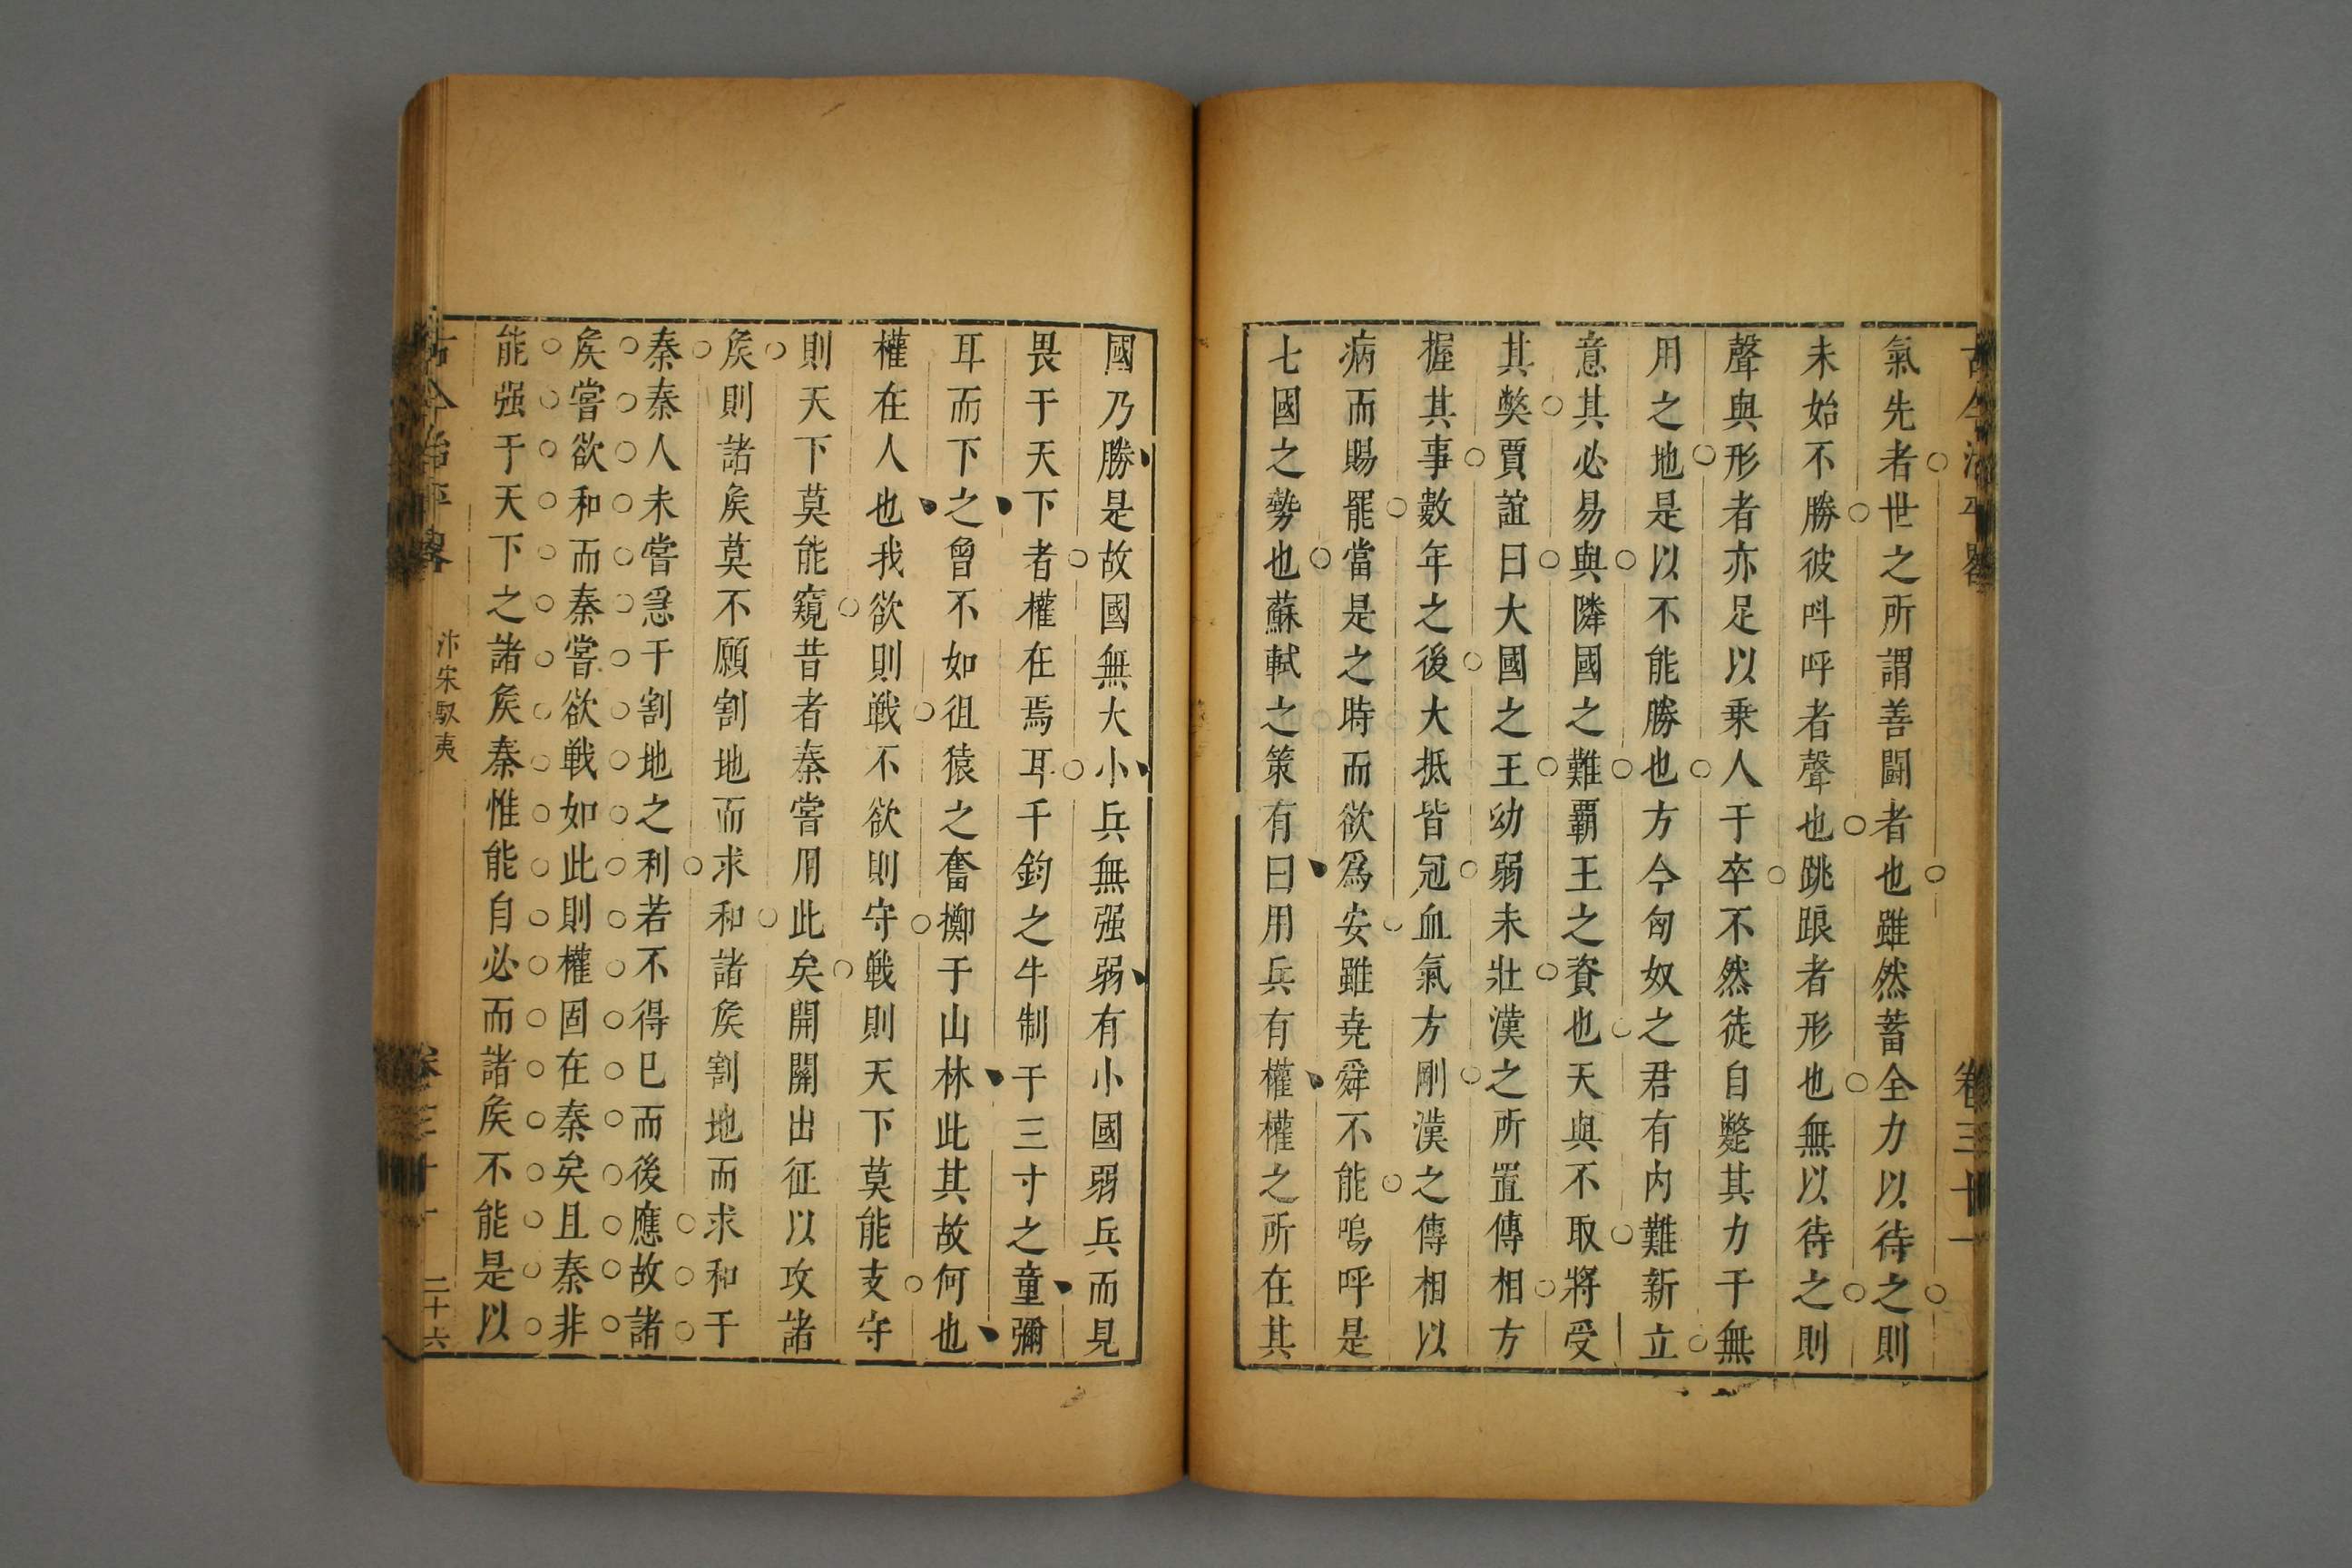 古今治平畧 卷三十一
氣先者世之所謂善鬪者也雖然蓄全力以待之則
未始不勝彼呌呼者聲也跳踉者形也無以待之則
聲與形者亦足以乗人于卒不然徒自斃其力于無
用之地是以不能勝也方今匈奴之君有内難新立
意其必易與隣國之難覇王之資也天與不取將受
其弊賈誼曰大國之王幼弱未壯漢之所置傳相方
握其事數年之後大抵皆冠血氣方剛漢之傳相以
病而賜罷當是之時而欲爲安雖堯舜不能嗚呼是
七國之勢也蘇軾之策有曰用兵有權權之所在其
國乃勝是故國無大小兵無强弱有小國弱兵而見
畏于天下者權在焉耳千鈞之牛制于三寸之童彌
耳而下之曾不如徂猿之奮擲于山林此其故何也
權在人也我欲則戦不欲則守戦則天下莫能支守
則天下莫能窺昔者秦嘗用此矣開關出征以攻諸
矦則諸矦莫不願割地而求和諸矦割地而求和于
秦秦人未嘗急于割地之利若不得已而後應故諸
矦嘗欲和而秦嘗欲戦如此則權固在秦矣且秦非
能强于天下之諸矦秦惟能自必而諸矦不能是以
古今治平畧 汴宋馭夷 卷三十一 二十六